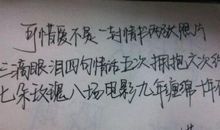 可惜爱不是一封情书两张照片
三滴眼泪四句情话五次拥抱六次
七朵玫瑰八场电影九年缠绵十年